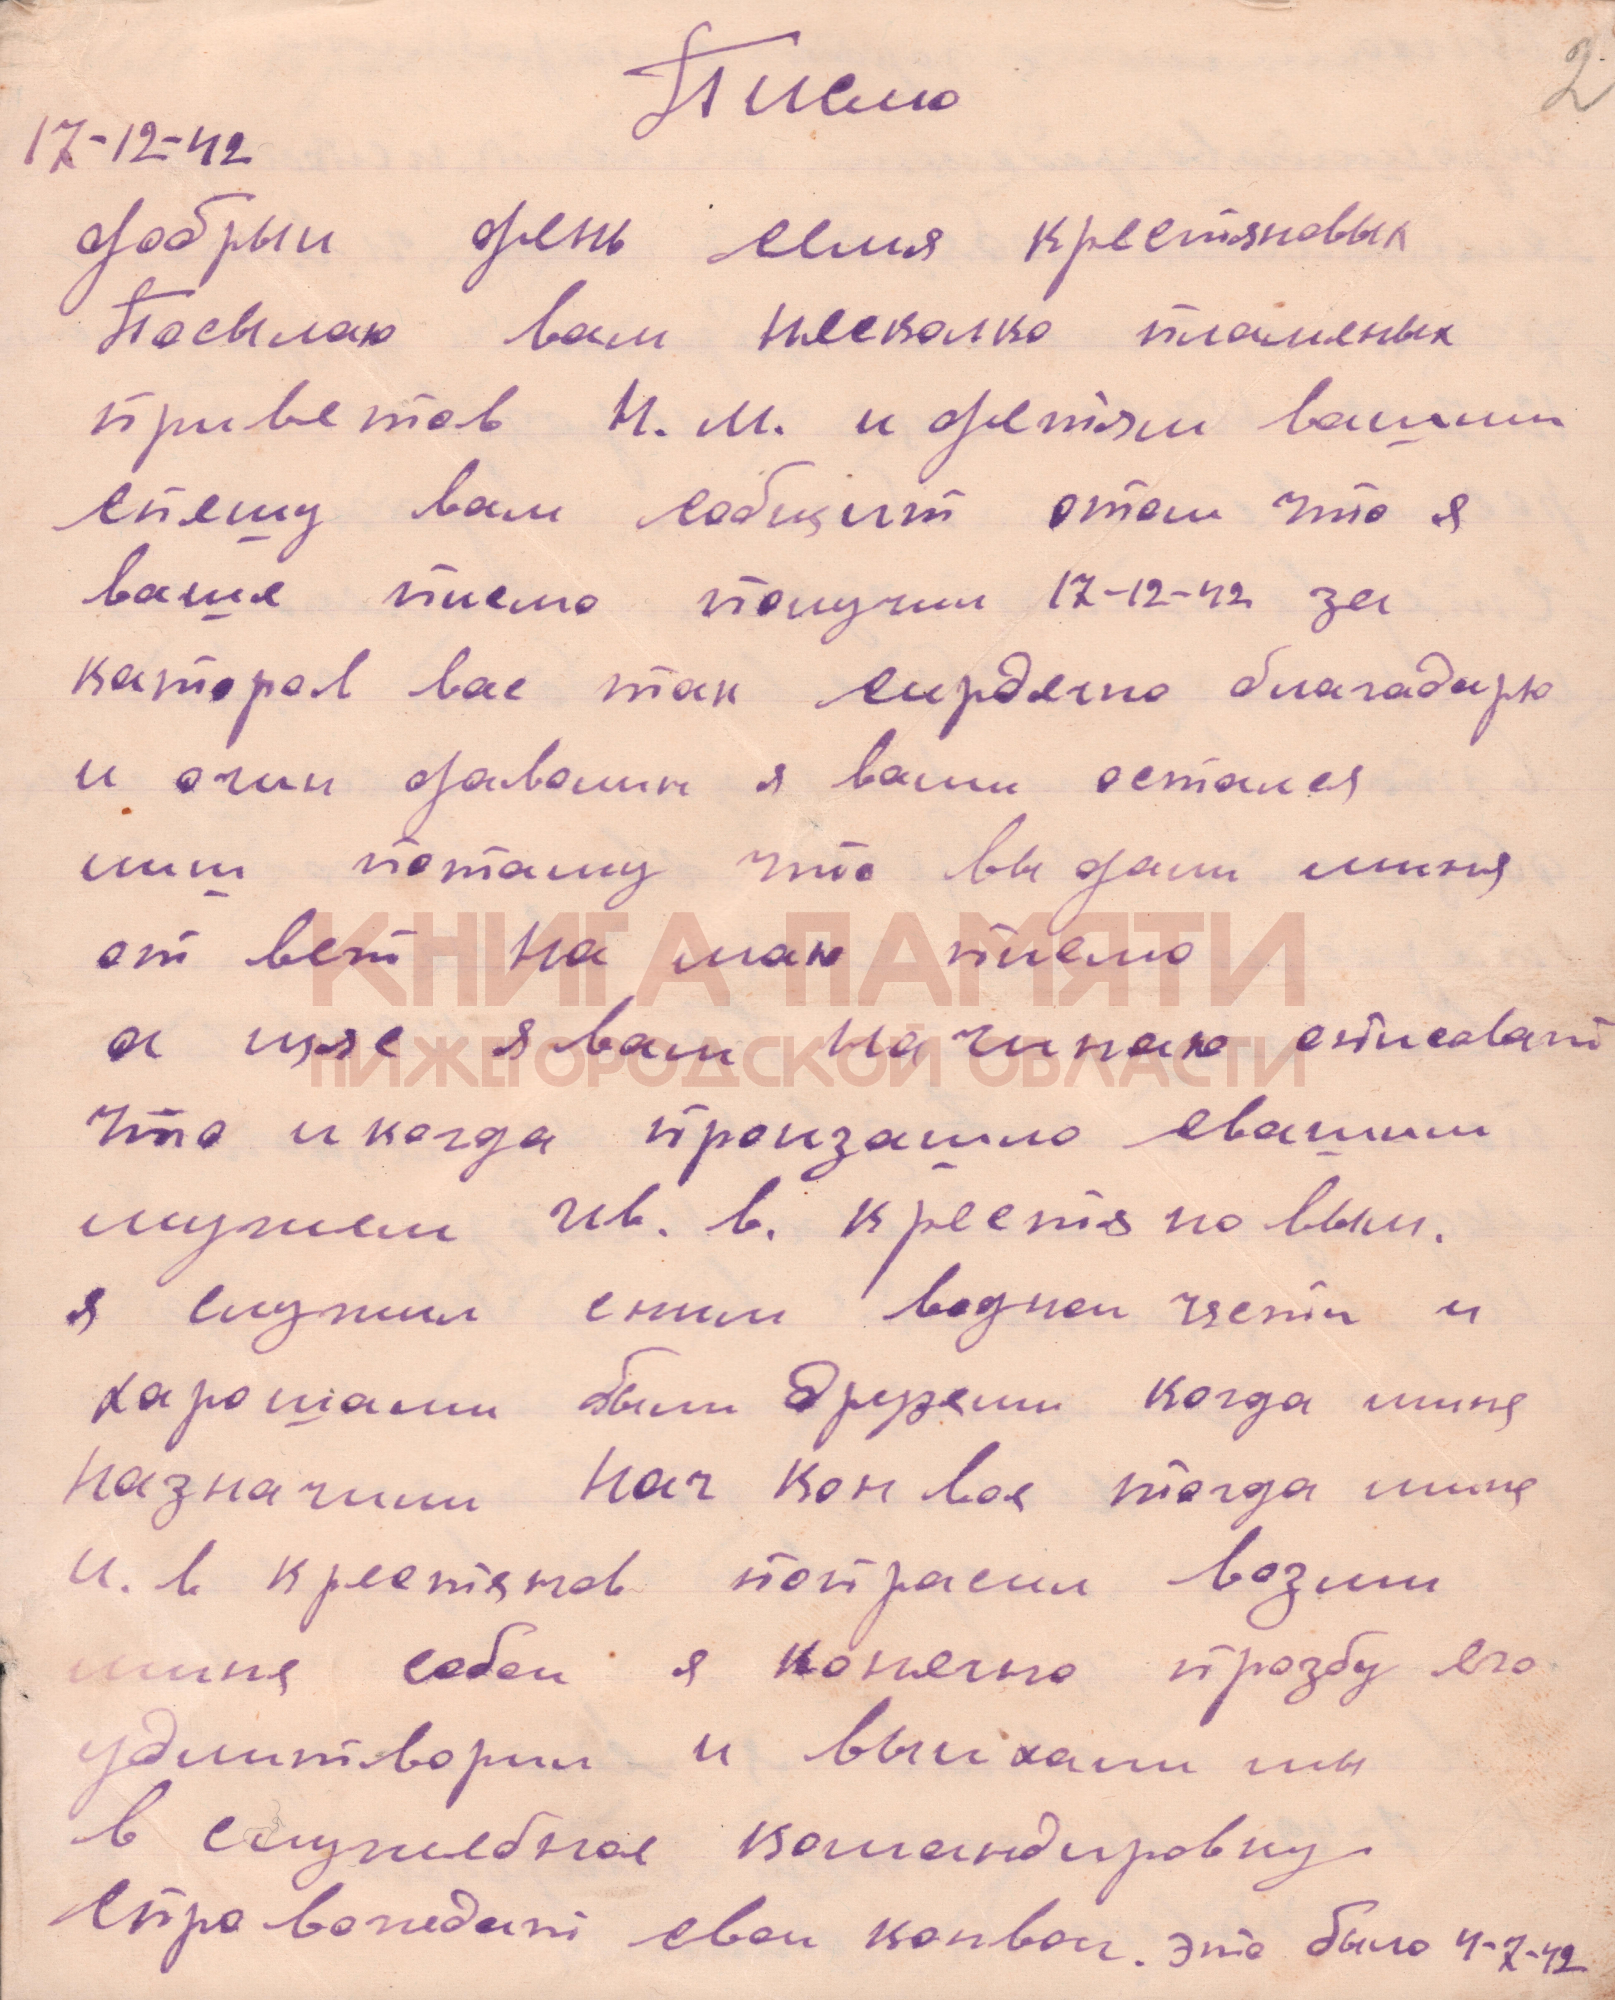 Писмо
2
17-12-42
Добрыи день семия крестяновых
Посылаю вам несколко пламеных
приветов Н. М. и детям вашим
спешу вам собщит отом что я
ваше писмо получил 17-12-42 за
каторов вас так сирдечно благадарю
и очин даволин я вами остался
ими потаму что вы дали миня
от вет на маю писмо
КНИГА ПАМЯТИ
НИЖЕГОРОДСКОЙ ОБЛАСТИ
а ище я вам на чинаю списоват
что и когда произашло свашим
мужем ив. в. крестяно вым.
я служил сним воднои части и
харошами были друзями когда миня
назначили нач кон воя тогда миня
и. в крестянов попрасил возми
миня собои я конечно прозбу его
удмитворил и выихали мы
в служебное командировку
спро вождат свои конвои. это было 4-7-42